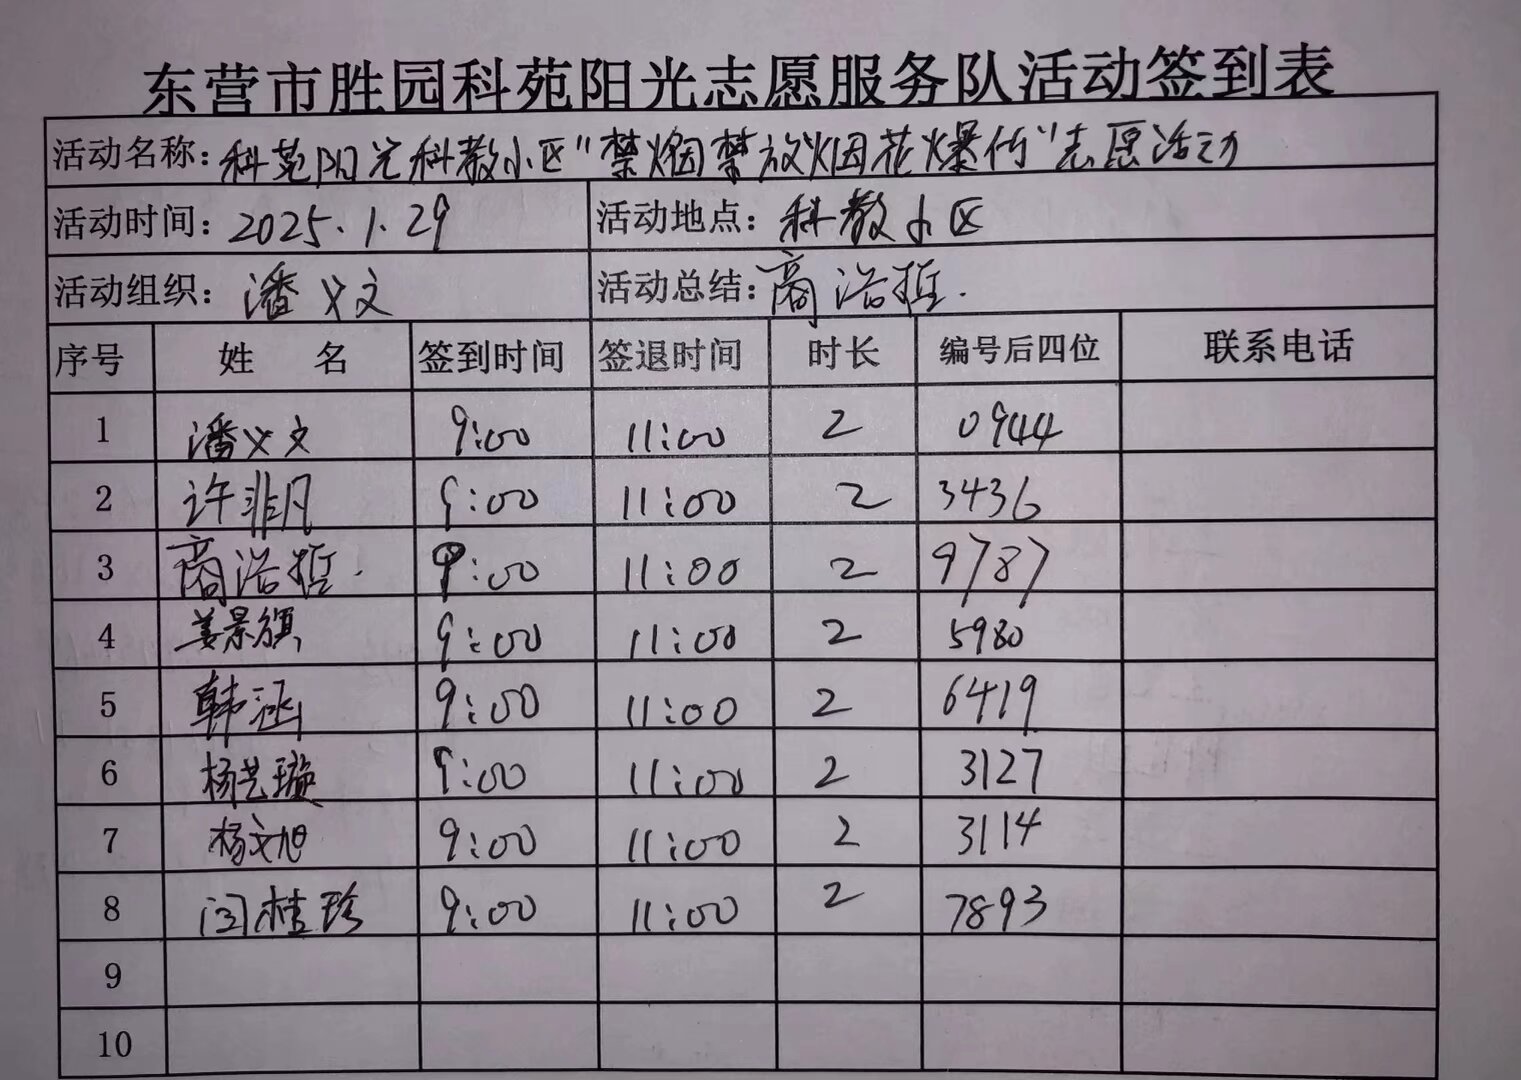 东营市胜园科苑阳光志愿服务队活动签到表
活动名称：科苑阳光科教小区“禁烟禁放烟花爆竹”志愿活动
活动时间：2025.1.29 活动地点：科教小区
活动组织：潘义文 活动总结：商浴哲.
序号 姓 名 签到时间 签退时间 时长 编号后四位 联系电话
1 潘义文 9:00 11:00 2 0944
2 许非凡 9:00 11:00 2 3436
3 商浴哲. 9:00 11:00 2 9787
4 姜景旗 9:00 11:00 2 5980
5 韩涵 9:00 11:00 2 6419
6 杨艺璇 9:00 11:00 2 3127
7 杨文旭 9:00 11:00 2 3114
8 闫桂珍 9:00 11:00 2 7893
9
10